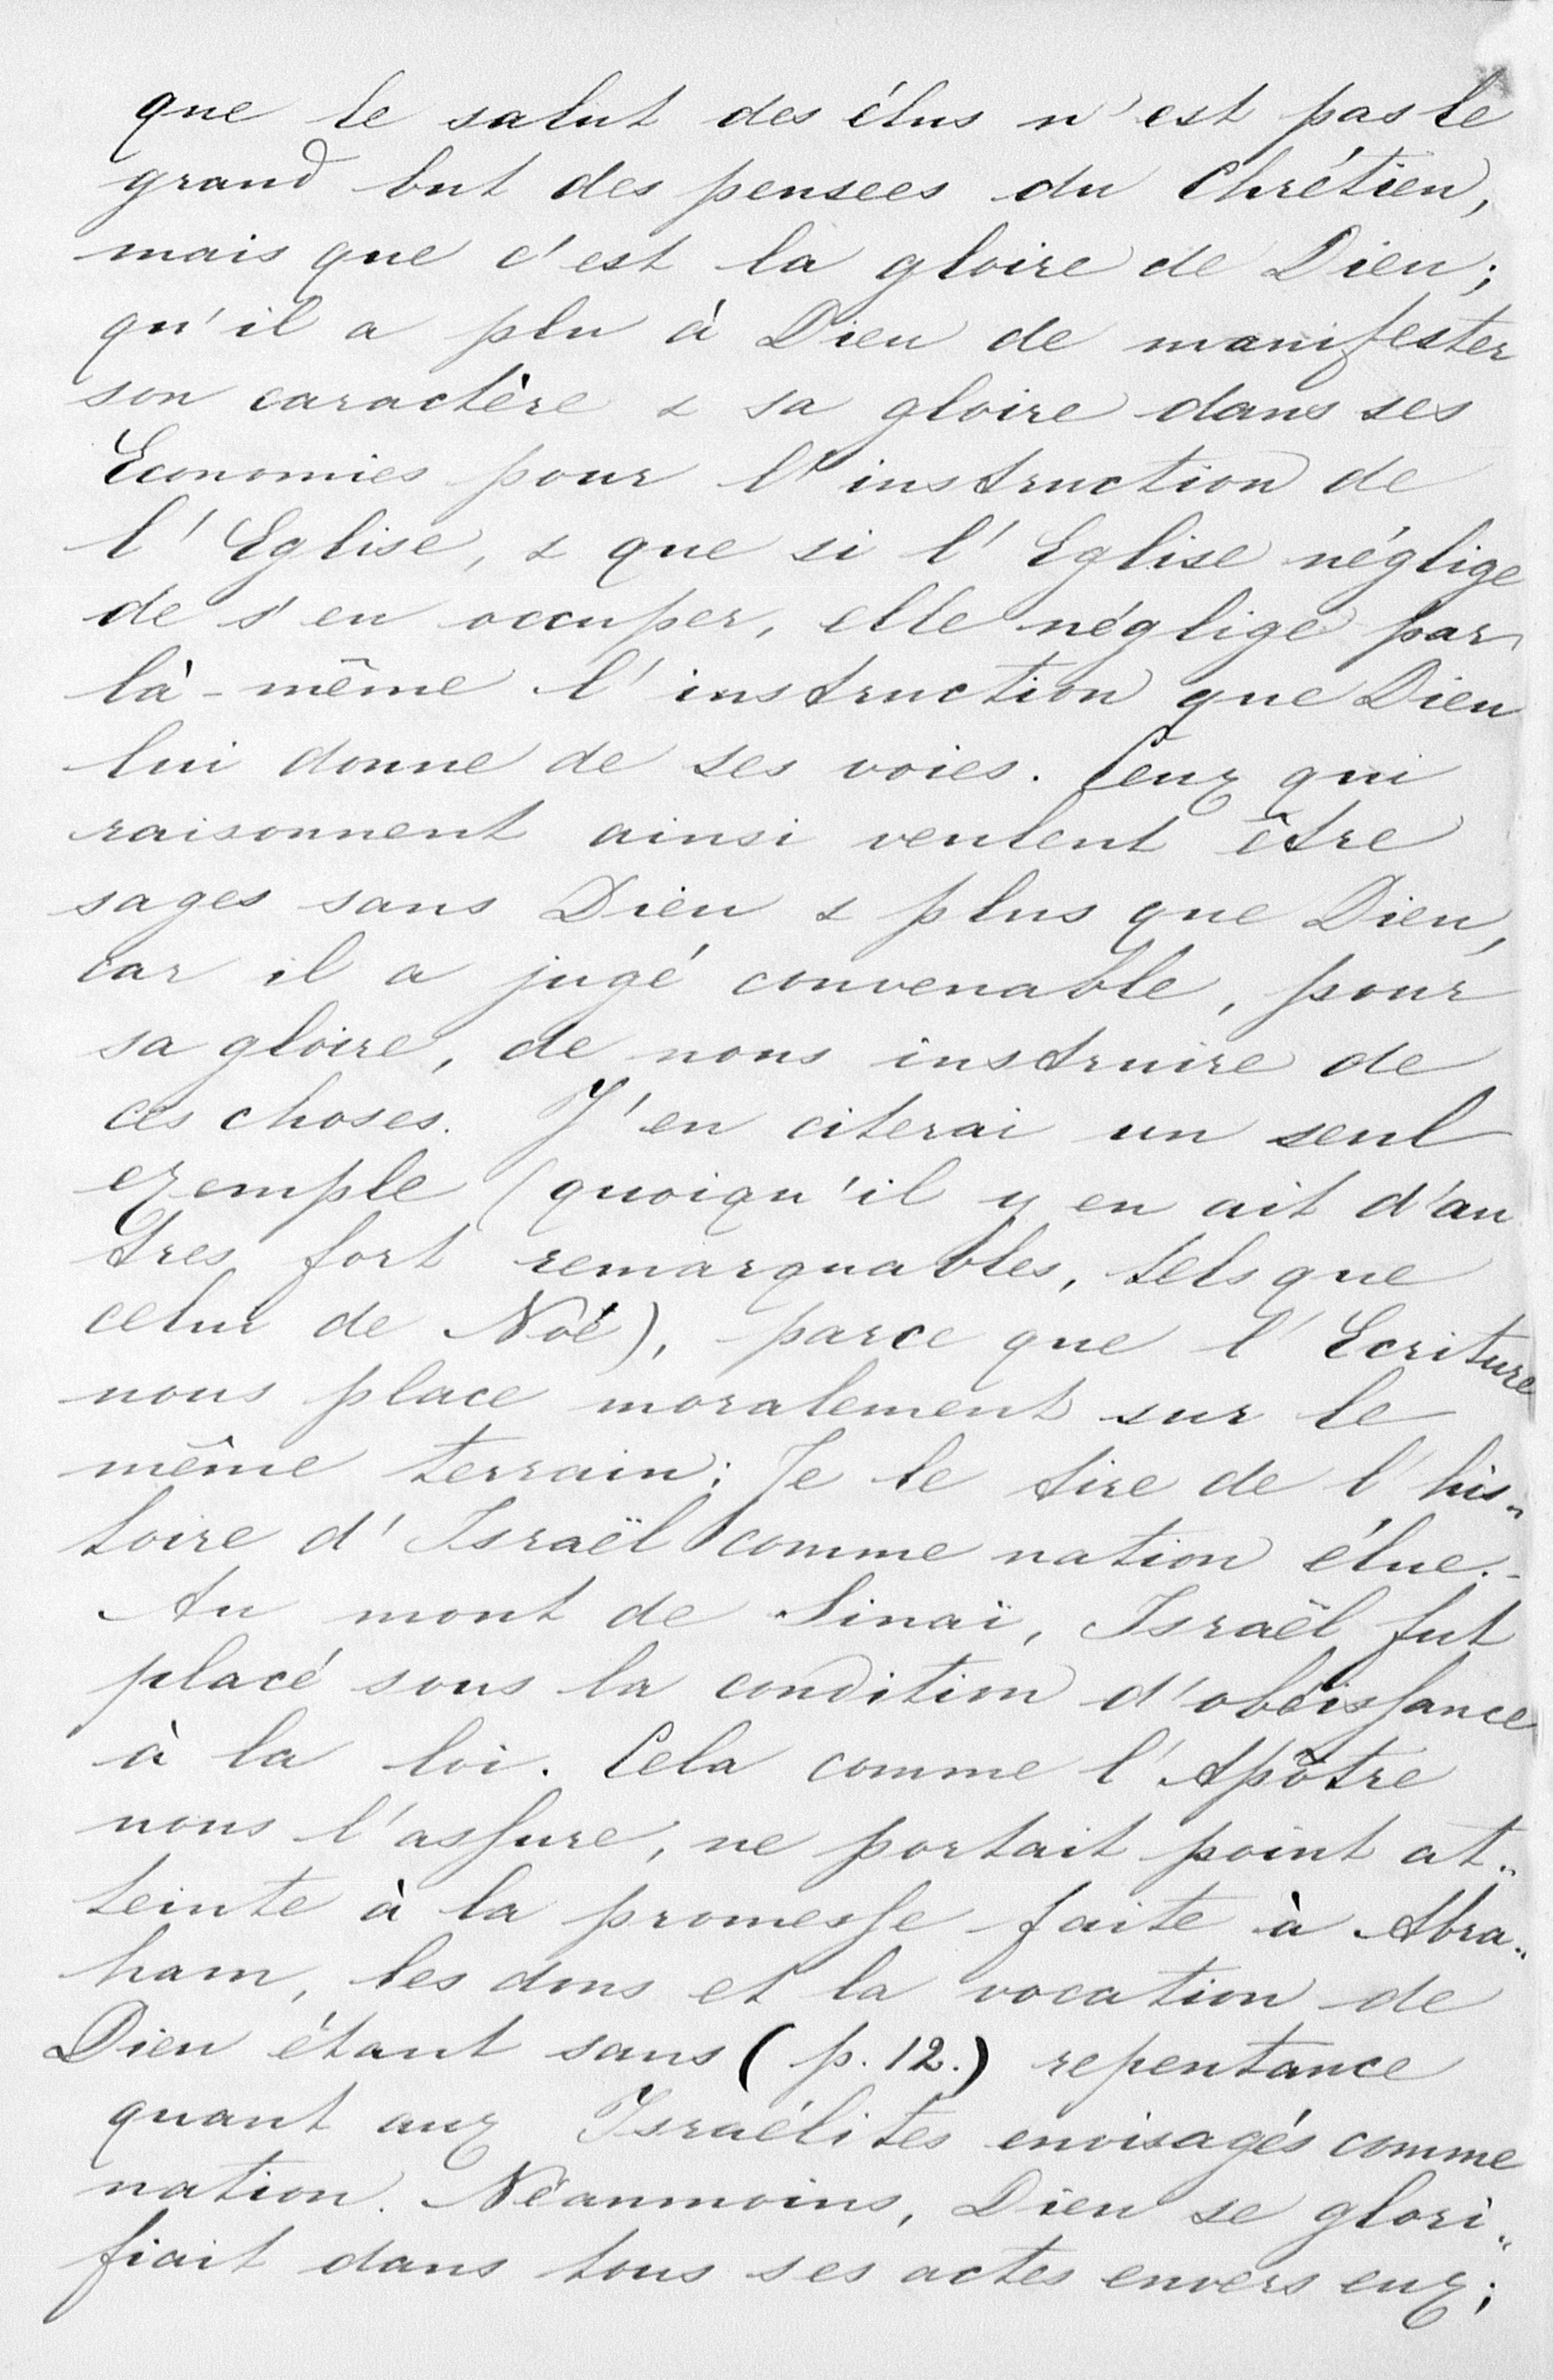 que le salut des élus n'est pas le
grand but des pensees du Chrétien,
mais que c'est la gloire de Dieu;
qu'il a plu à Dieu de manifester
son caractère & sa gloire dans ses
Economies pour l'instruction de
l'Eglise, & que si l'Eglise néglige
de s'en occuper, elle néglige par
là-même l'instruction que Dieu
lui donne de ses voies. Ceux qui
raisonnent ainsi veulent être
sages sans Dieu & plus que Dieu,
car il a jugé convenable, pour
sa gloire, de nous instruire de
ces choses. J'en citerai un seul
exemple (quoiqu'il y en ait d'au
tres fort remarquables, tels que
celui de Noé), parce que l'Ecriture
nous place moralement sur le
même terrain: Je le tire de l'his„
toire d'Israël comme nation élue.-
Au mont de Sinaï, Israël fut
placé sous la condition d'obéissance
à la loi. Cela comme l'Apôtre
nous l'assure, ne portait point at„
teinte à la promesse faite à Abra„
ham, les dons et la vocation de
Dieu étant sans (p. 12.) repentance
quant aux Israélites envisagés comme
nation. Néanmoins, Dieu se glori„
fiait dans tous ses actes envers eux;